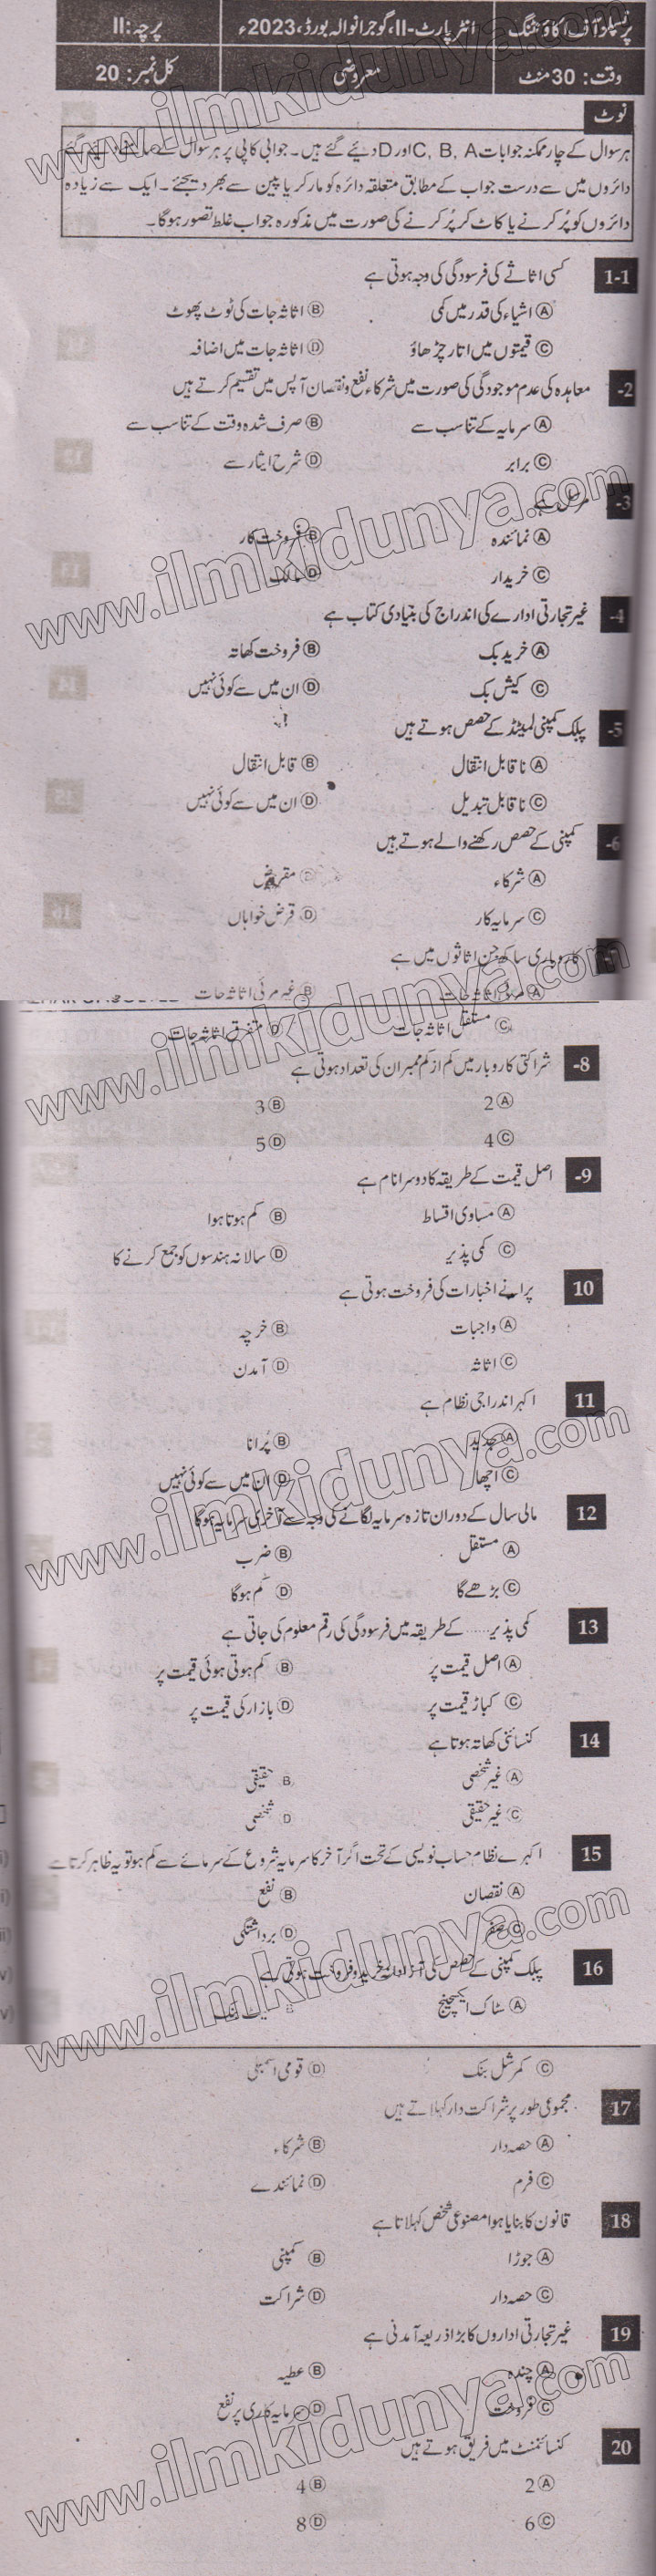 پرنسپلز آف اکاؤنٹنگ انٹر پارٹ-II، گوجرانوالہ بورڈ، 2023ء پرچہ: II
وقت: 30 منٹ معروضی کل نمبر: 20
نوٹ
ہر سوال کے چار ممکنہ جوابات C, B, A اور D دیئے گئے ہیں۔ جوابی کاپی پر ہر سوال کے سامنے دیئے گئے
دائروں میں سے درست جواب کے مطابق متعلقہ دائرہ کو مارکر یا پین سے بھر دیجئے۔ ایک سے زیادہ
دائروں کو پُر کرنے یا کاٹ کر پُر کرنے کی صورت میں مذکورہ جواب غلط تصور ہوگا۔
1-1 کسی اثاثے کی فرسودگی کی وجہ ہوتی ہے
Ⓐ اشیاء کی قدر میں کمی Ⓑ اثاثہ جات کی ٹوٹ پھوٹ
Ⓒ قیمتوں میں اتار چڑھاؤ Ⓓ اثاثہ جات میں اضافہ
-2 معاہدہ کی عدم موجودگی کی صورت میں شرکاء نفع و نقصان آپس میں تقسیم کرتے ہیں
Ⓐ سرمایہ کے تناسب سے Ⓑ صرف شدہ وقت کے تناسب سے
Ⓒ برابر Ⓓ شرح ایثار سے
-3 ہے
Ⓐ نمائندہ Ⓑ فروخت کار
Ⓒ خریدار Ⓓ مالک
-4 غیر تجارتی ادارے کی اندراج کی بنیادی کتاب ہے
Ⓐ خرید بک Ⓑ فروخت کھاتہ
Ⓒ کیش بک Ⓓ ان میں سے کوئی نہیں
-5 پبلک کمپنی لمیٹڈ کے حصص ہوتے ہیں
Ⓐ ناقابل انتقال Ⓑ قابل انتقال
Ⓒ ناقابل تبدیل Ⓓ ان میں سے کوئی نہیں
-6 کمپنی کے حصص رکھنے والے ہوتے ہیں
Ⓐ شرکاء مقروض
Ⓒ سرمایہ کار Ⓓ قرض خواہاں
-7 کاروباری ساکھ جن اثاثوں میں ہے
Ⓐ اثاثہ جات Ⓑ غیر مرئی اثاثہ جات
Ⓒ مستقل اثاثہ جات Ⓓ متفرق اثاثہ جات
-8 شراکتی کاروبار میں کم از کم ممبران کی تعداد ہوتی ہے
Ⓐ 2 Ⓑ 3
Ⓒ 4 Ⓓ 5
-9 اصل قیمت کے طریقہ کا دوسرا نام ہے
Ⓐ مساوی اقساط Ⓑ کم ہوتا ہوا
Ⓒ کمی پذیر Ⓓ سالانہ ہندسوں کو جمع کرنے کا
10 پرانے اخبارات کی فروخت ہوتی ہے
Ⓐ واجبات Ⓑ خرچہ
Ⓒ اثاثہ Ⓓ آمدن
11 اکہرا اندراجی نظام ہے
Ⓐ جدید Ⓑ پُرانا
Ⓒ اچھا Ⓓ ان میں سے کوئی نہیں
12 مالی سال کے دوران تازہ سرمایہ لگانے کی وجہ سے آخری سرمایہ ہوگا
Ⓐ مستقل Ⓑ ضرب
Ⓒ بڑھے گا Ⓓ کم ہوگا
13 کمی پذیر ..... کے طریقہ میں فرسودگی کی رقم معلوم کی جاتی ہے
Ⓐ اصل قیمت پر Ⓑ کم ہوتی ہوئی قیمت پر
Ⓒ کباڑ قیمت پر Ⓓ بازار کی قیمت پر
14 کنسائنی کھاتہ ہوتا ہے
Ⓐ غیر شخصی B حقیقی
Ⓒ غیر حقیقی D شخصی
15 اکہرے نظام حساب نویسی کے تحت اگر آخر کا سرمایہ شروع کے سرمائے سے کم ہو تو یہ ظاہر کرتا ہے
Ⓐ نقصان Ⓑ نفع
Ⓒ صفر Ⓓ برداشتگی
16 پبلک کمپنی کے حصص کی آزادانہ خرید و فروخت ہوتی ہے
Ⓐ سٹاک ایکسچینج
Ⓒ کمرشل بنک Ⓓ قومی اسمبلی
17 مجموعی طور پر شراکت دار کہلاتے ہیں
Ⓐ حصہ دار Ⓑ شرکاء
Ⓒ فرم Ⓓ نمائندے
18 قانون کا بنایا ہوا مصنوعی شخص کہلاتا ہے
Ⓐ جوڑا Ⓑ کمپنی
Ⓒ حصہ دار Ⓓ شراکت
19 غیر تجارتی اداروں کا بڑا ذریعہ آمدنی ہے
Ⓐ چندہ Ⓑ عطیہ
Ⓒ فروخت Ⓓ سرمایہ کاری پر نفع
20 کنسائمنٹ میں فریق ہوتے ہیں
Ⓐ 2 Ⓑ 4
Ⓒ 6 Ⓓ 8
www.ilmkidunya.com
www.ilmkidunya.com
www.ilmkidunya.com
www.ilmkidunya.com
www.ilmkidunya.com
www.ilmkidunya.com